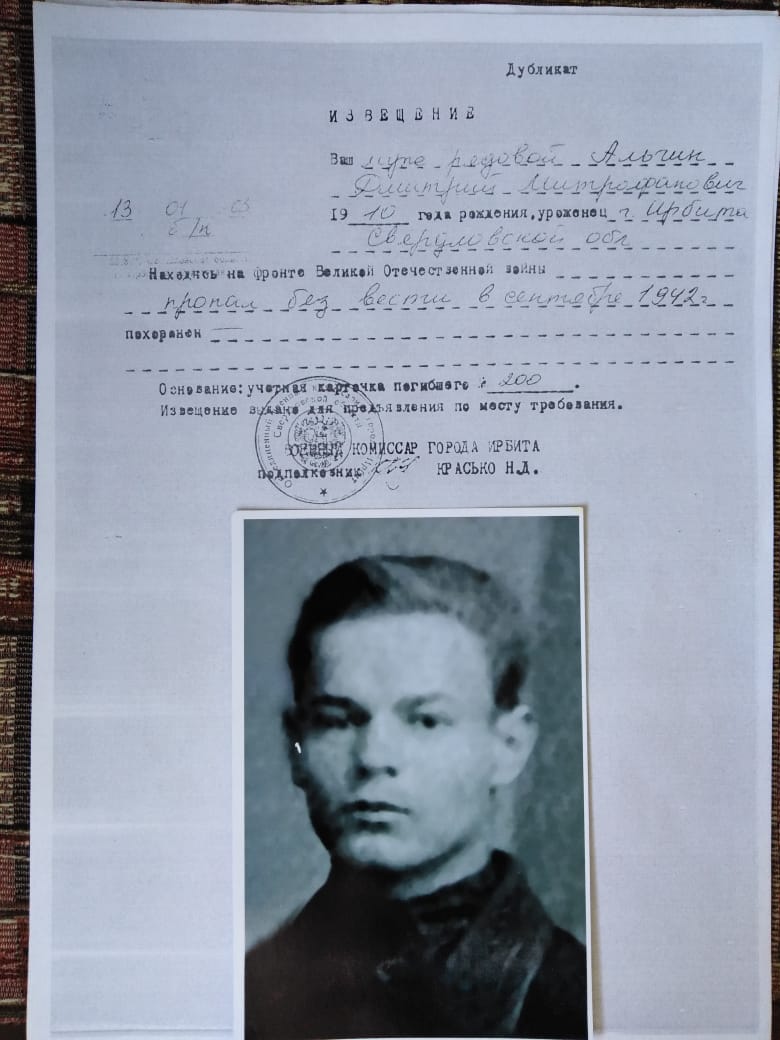 Дубликат
ИЗВЕЩЕНИЕ
Ваш муж рядовой Альгин
Дмитрий Митрофанович
13 01 03
б/н
19 10 года рождения, уроженец г. Ирбита
Свердловской обл
Находясь на фронте Великой Отечественной войны
пропал без вести в сентябре 1942г
похоронен —
Основание: учетная карточка погибшего № 200.
Извещение выдано для предъявления по месту требования.
ВОЕННЫЙ КОМИССАР ГОРОДА ИРБИТА
подполковник КРАСЬКО Н.Д.